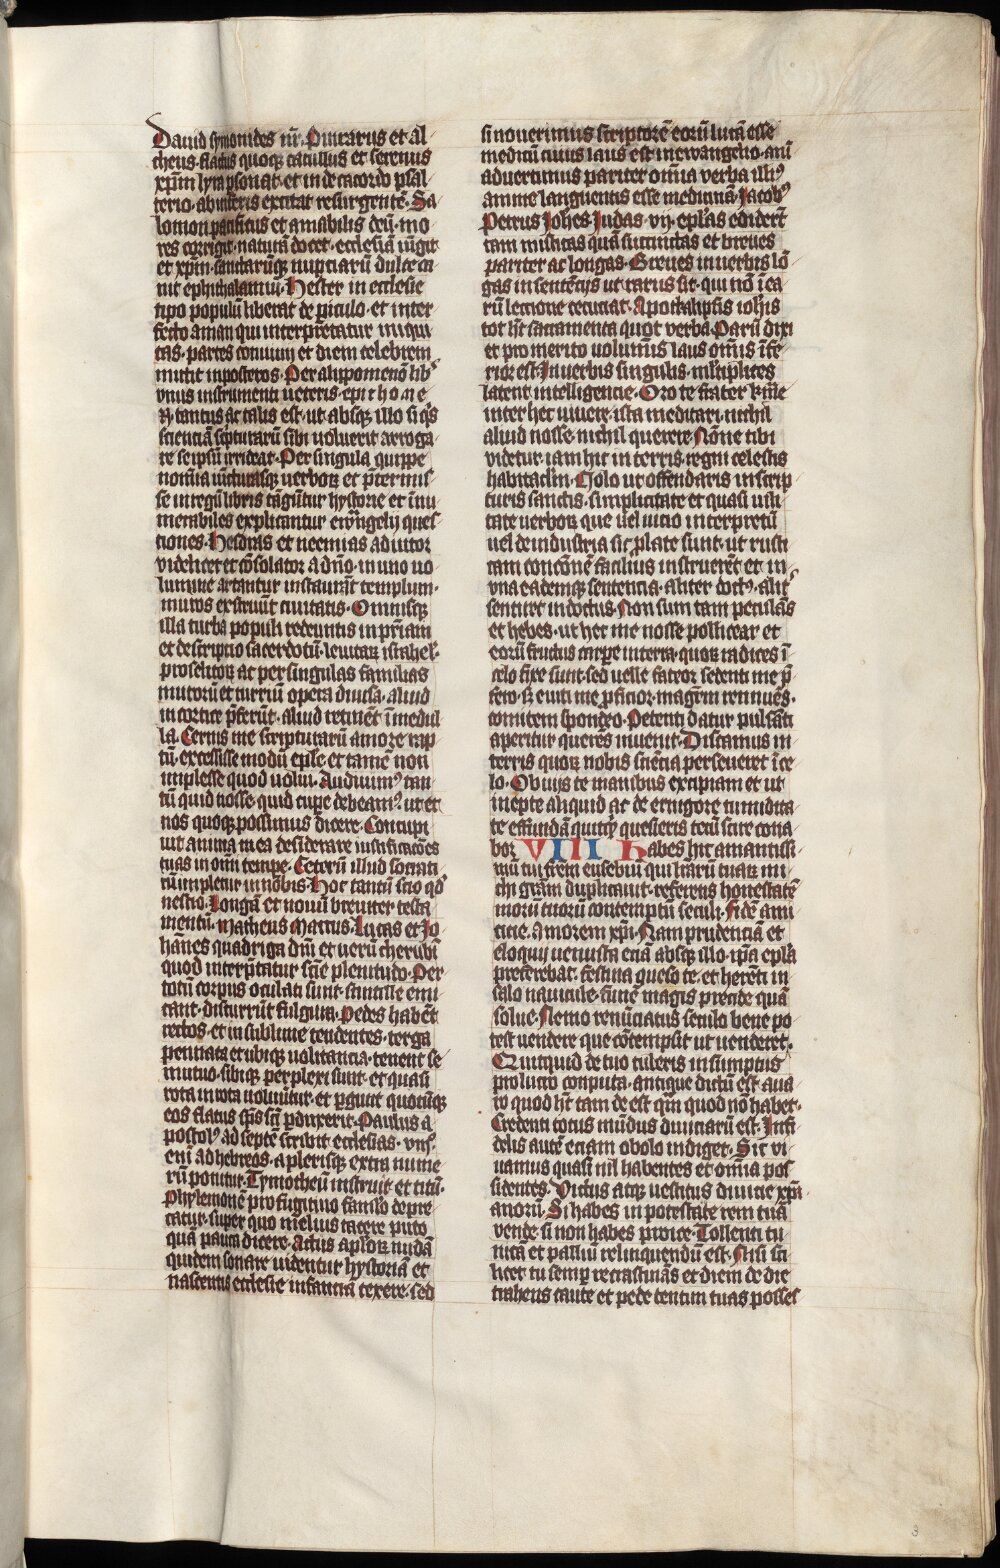 Dauid symonides nr̄. Pincarus et al
cheus. flaccus quoqꝫ catullus et serenus
xp̄m lyra ꝑsonat. et in decacordo psal
terio. ab inferis excitat resurgentē. Sa
lomon pacificus et amabilis dn̄i. mo
res corrigit. naturā docet. ecclesiā iūgit
et xp̄m. sanctarūqꝫ nuptiarū dulce ca
nit epythalamiū. Hester in ecclesie
tipo populū liberat de ꝑiculo. et inter
fecto aman qui interpretatur iniqui
tas. partes conuiuij et diem celebrem
mittit in posteros. Per alypomenō lib᷒
vnus instrumenti veteris. epithome
ꝶ tantus ac talis est. ut absqꝫ illo si q̄s
scientiā scripturarū sibi uoluerit arroga
re seipsū irrideat. Per singula quippe
nomīa iūcturasqꝫ uerborꝫ et p̄termis
se in regū libris tāgūtur hystorie et īnu
merabiles explicantur ewangelij ques
tiones. Hesdras et neemias adiutor
videlicet et cōsolator a dn̄o. in uno uo
lumine artantur instaurāt templum.
muros exstruūt ciuitatis. Omnisqꝫ
illa turba populi redeuntis in pr̄iam
et descriptio sacerdotū. leuitarꝫ israhel.
proselitorꝫ ac per singulas familias
murorū et turriū opera diuisa. aliud
in cortice p̄ferūt. aliud retinēt ī medul
la. Cernis me scripturarū amore rap
tū. excessisse modū ep̄le. et tamē non
implesse quod uolui. Audiuim᷒ tan
tū quid nosse. quid cupe debeam᷒. ut et
nos quoqꝫ possimus dicere. Concupi
uit anima mea desiderare iustificacōes
tuas in om̄i tempe. Ceterū illud socrati
cū impletur in nobis. Hoc tantū scio qd̄
nescio. Longā et nouū breuiter testa
mentū. Matheus Marcus. Lucas et Jo
hānes quadriga dn̄i et uerū cherubī
quod interp̄tatur sciē plenitudo. Per
totū corpus oculati sunt. scintille emi
cant. discurrūt fulgura. Pedes habēt
rectos. et in sublime tendentes. terga
pennata et ubiqꝫ uolitancia. tenent se
mutuo. sibiqꝫ perplexi sunt. et quasi
rota in rota uoluūtur. et ꝑgunt quocūqꝫ
eos flatus sp̄s scī ꝑduxerit. Paulus a
postol᷒ ad septē scribit ecclesias. vns᷒
enī ad hebreos. a plerisqꝫ extra nume
rū ponitur. Tymotheū instruit. et titū.
Phylemonē pro fugitiuo famlo depre
catur. super quo melius tacere puto
quā pauca dicere. actus aplōrꝫ nudā
quidem sonare uidentur hystoriā et
nascentis ecclesie infantiā texere. sed
si nouerimus scriptorē eorū lucā esse
medicū cuius laus est in ewangelio. anī
aduertimus pariter om̄ia verba illi᷒
anime languentis esse medicinā. Jacob᷒
Petrus Johēs Judas. vij. ep̄las ediderūt
tam misticas quā succinctas et breues
pariter ac longas. Breues in uerbis lō
gas in sentēcijs ut rarus sit. qui nō ī ea
rū lectione cecuciat. Apocalipsis iohīs
tot ht̄ sacramenta quot verba. Parū dixi
et pro merito uoluminis laus om̄is īfe
rior est. In uerbis singulis. mltiplices
latent intelligencie. Oro te frater karīē
inter hec uiuere. ista meditari. nichil
aliud nosse. nichil querere. Nōne tibi
videtur iam hic in terris. regni celestis
habitaclm̄. Nolo ut offendaris in scrip
turis sanctis. simplicitate et quasi uili
tate uerborꝫ que uel uicio interpretū
uel de industria sic ꝓlate sunt. ut rusti
cam concōnē facilius instruerēt et in
vna eademqꝫ sentencia. aliter doct᷒. alit᷑
sentiret indoctus. Non sum tam petulās
et hebes. ut hec me nosse pollicear et
eorū fructus carpe in terra. quorꝫ radices ī
celo fixe sunt. sed uelle fateor. sedenti me p̄
fero. ꝶ euiti me ꝑficior. mag̅rm rennuēs.
comitem spondeo. Petenti datur pulsāti
aperitur. querēs inuenit. Discamus in
terris quorꝫ nobis sciēcia perseueret ī ce
lo. Obuijs te manibus excipiam et ut
inepte aliquid ac de ermigore tumidita
te effundā quitqꝫ quesieris tecū scire cona
bor VIII Habes hic amantissi
mū tui frēm eusebiū qui litrārū tuarꝫ mi
chi grām duplicauit. referens honestatē
morū tuorū contemptū seculi. fidē ami
cicie. amorem xp̄i. Nam prudenciā et
eloquij uenusta eciā absqꝫ illo. ip̄a ep̄la
preferebat. festina queso te. et herēti in
salo nauicule. funē magis prende quā
solue. Nemo renūciatus seculo bene po
test uendere que cōtempsit ut uenderet.
Quitquid de tuo tuleris in sumptus
pro lucro conputa. antique dictū est. aua
ro quod ht̄ tam de est qm̄ quod nō habet.
Credenti totus mūdus diuiciarū est. Infi
delis autē eciam obolo indiget. Sic vi
uamus quasi nīl habentes et om̄ia pos
sidentes. Victus atqꝫ uestitus diuicie xp̄i
anorū. Si habes in potestate rem tuā
vende. si non habes proice. Tollenti tu
nicā et palliū relinquendū est. Nisi sci
licet tu semꝑ recrastināꝫ et diem de die
trahens caute et pede tentim tuas posses
3